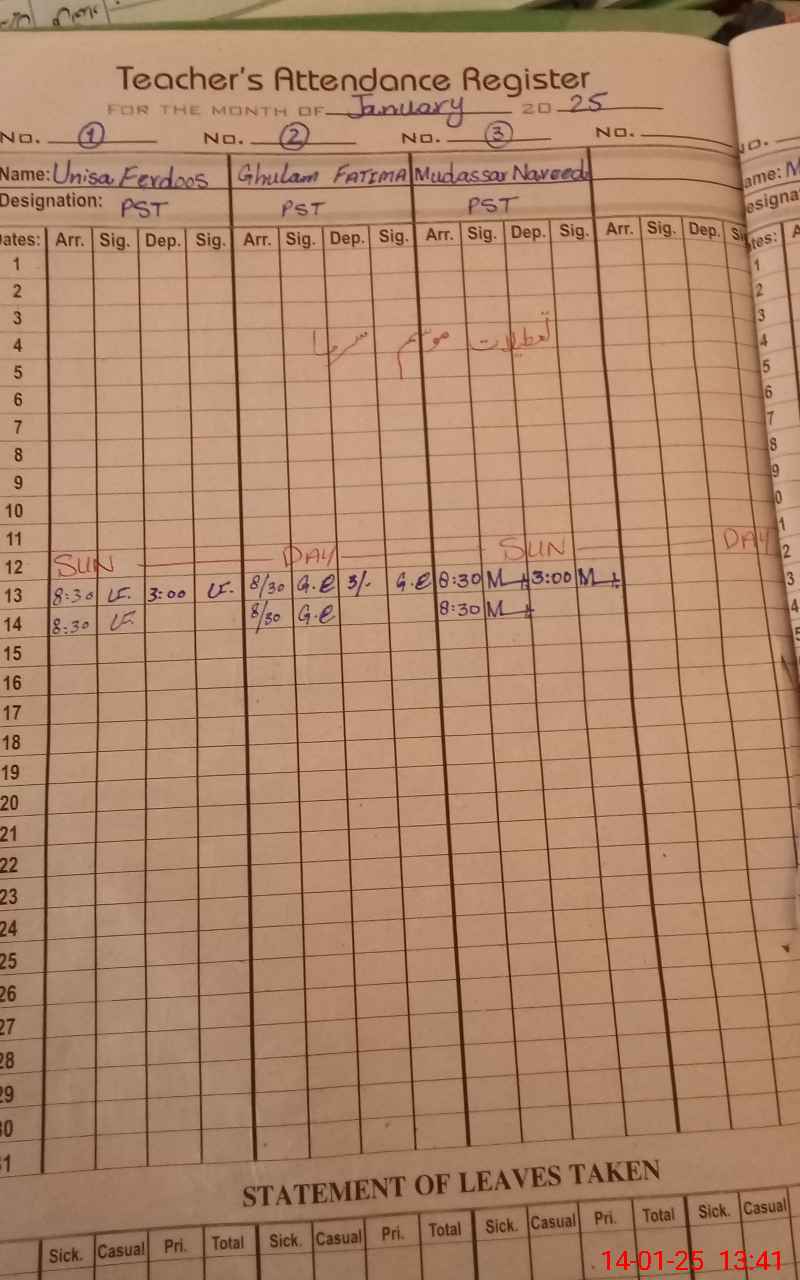 Teacher's Attendance Register
FOR THE MONTH OF January 20 25
No. 1 No. 2 No. 3 No.
Name: Unisa Ferdoos Ghulam FATIMA Mudassar Naveed
Designation: PST PST PST
Dates: Arr. Sig. Dep. Sig. Arr. Sig. Dep. Sig. Arr. Sig. Dep. Sig. Arr. Sig. Dep.
1
2
3
4 تعطیلات موسم سرما
5
6
7
8
9
10
11
12 SUN DAY SUN DAY
13 8:30 U.F. 3:00 U.F. 8/30 G.E 3/- G.E 8:30 M 3:00 M
14 8:30 U.F. 8/30 G.E 8:30 M
15
16
17
18
19
20
21
22
23
24
25
26
27
28
29
30
31
STATEMENT OF LEAVES TAKEN
Sick. Casual Pri. Total Sick. Casual Pri. Total Sick. Casual Pri. Total Sick. Casual
14-01-25 13:41